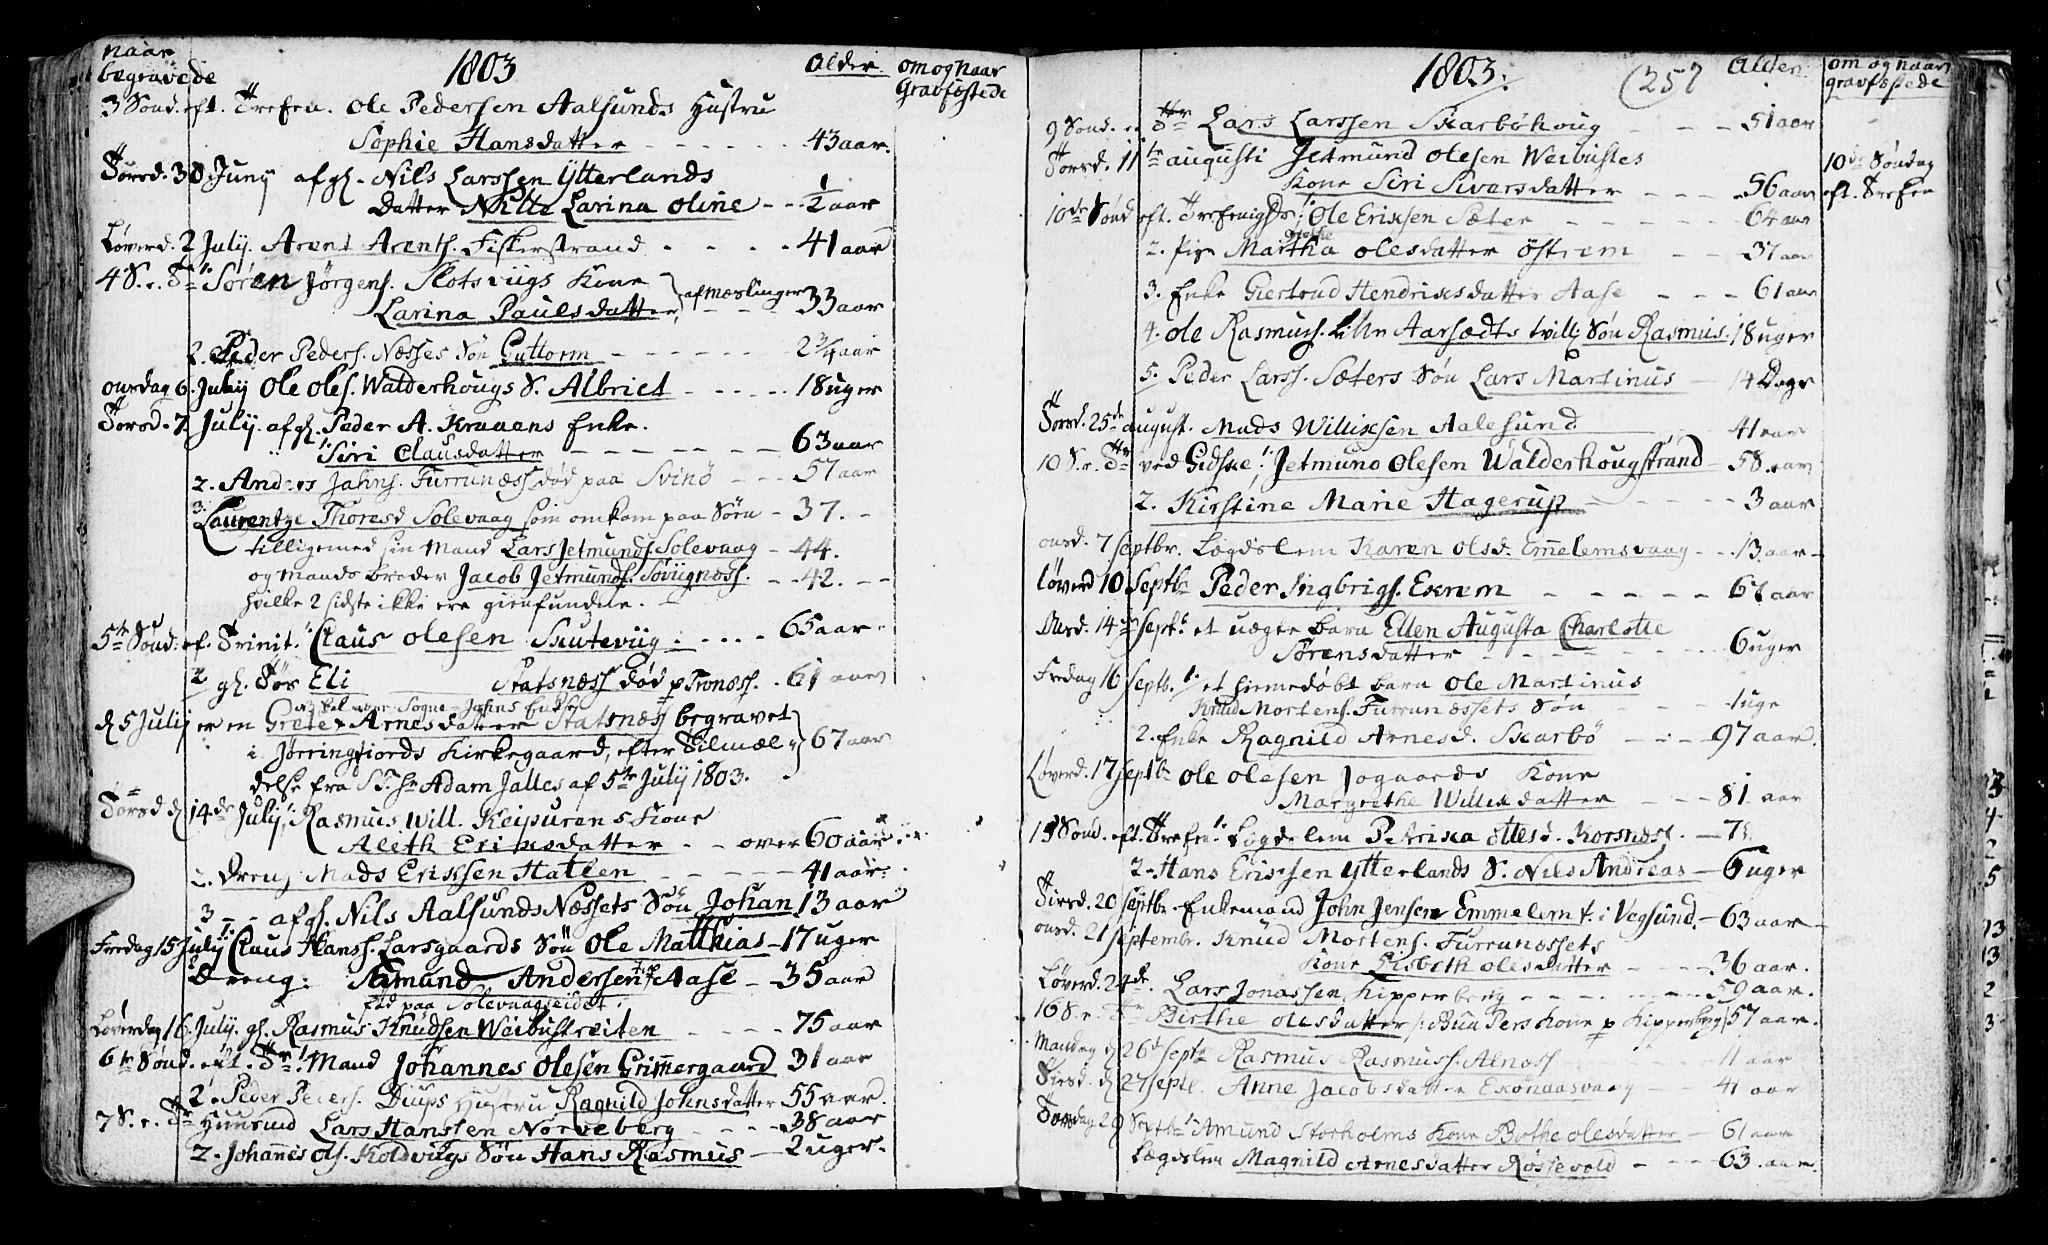 naar
begravede
1803
Alder.
om og naar
Gravfæstede
3 Sønd. eft. Trefen. Ole Pedersen Aalsunds Hustru
Sophie Hansdatter - - - - - - 43 aar.
Torsd. 30 Junij afgl. Nils Larssen Ytterlands
Datter Nille Larina Oline - - 1/2 aar
Løverd. 2 Julij. Arent Arents. Fiskerstrand - - - - 41 aar
4 S. e. Tr. 1. Søren Jørgens. Slotsviigs Kone
Larina Paulsdatter, af mæslinger - - - 33 aar
2. Peder Peders. Næsses Søn Guttorm - - - - - - 2 3/4 aar
onsdag 6. Julij Ole Oles. Walderhougs S. Albrict - - - - - 18 uger
Torsd. 7 Julij. afgl. Peder A. Kraaens Enke.
1. Siri Clausdatter - - - - - - - 63 aar
2. Anders Jahns. Furrunæss død paa Svinø - - - 57 aar
3. Laurentze Thoresd Solevaag som omkom paa Søen - 37. -
tilligemed sin Mand Lars Jetmunds. Solevaag - 44.
og Mands broder Jacob Jetmunds. Søviignæss. - - 42. - -
hvilke 2 sidste ikke ere gienfundne. -
5te Sønd. ef. Trinit. 1. Claus Olesen Skuteviig - - - - 65 aar.
2 gl. Tøs Eli Statsnæss død p Tronæss. . 61 aar
Sogne - Jahns Enke
d 5 Julij er en Grete Arnesdatter Statsnæss begravet
i Jørringfiords Kirkegaard, efter Tilmæl- 67 aar
delse fra Hr Adam Jalles af 5te Julij 1803.
Torsd d 14de Julij, 1. Rasmus Will. Keipurens Kone
Aleth Eriksdatter - - over 60 aar
2. Dreng Mads Erixsen Hatlen - - - - - 41 aar.
3 - - afgl. Nils Aalsunds Næssets Søn Johan 13 aar
Fredag 15 Julij 1. Claus Hanss. Larsgaards Søn Ole Matthias - 17 uger
2 Dreng: Amund Andersen Aase - 35 aar
død paa Solevaagseidet.
Løverdag 16 Julij. gl. Rasmus Knudsen Weibustreiten - - - - 75 aar
6te Sønd. eft. Tr. 1. Mand Johannes Olesen Grimmergaard 31 aar
2. Peder Peders. Diups Hustru Ragnild Johnsdatter 55 aar.
7 S. e. Tr Huusmd Lars Hanssen Nørveberg - - - - 38 aar
2. Johannes Ols. Koldviigs Søn Hans Rasmus - 2 uger.
1803.
257
Alder.
om og naar
gravfæstede
9 Sønd. e. Tr Lars Larssen Skarbøhoug - - - 51 aar
Torsd. 11te augusti Jetmund Olesen Weibustes
Kone Siri Sivarsdatter - - - 56 aar
10de Søndag
eft. Trefen
10de Sønd eft. Trefenigh: 1. Ole Erixsen Sæter - - - - - 64 aar
2. Pige Martha Olesdatter Østrem - - 37 aar
3. Enke Giertrud Hendrixsdatter Aase - - - 61 aar
4. Ole Rasmuss. Lille Aarsædts tvill: Søn Rasmus. 18 uger
5. Peder Larss. Sæters Søn Lars Martinus - 14 Dage
Torsd. 25de august. Mads Willixsen Aalesund 41 aar
10 S. e. Tr ved Gidske, 1. Jetmund Olesen Walderhougstrand - 58 aar
2. Kirstine Marie Hagerup - - - - - - 3 aar
onsd. 7 septbr. Lægdslem Karen Olsd. Emmelemsvaag - - 13 aar
Løverd 10 Septbr Peder Ingbrigs. Exrem - - - - - 67 aar
Onsd. 14 septbr et uægte barn Ellen Augusta Charlotte
Sørensdatter - - - - - - - - 6 uger
Fredag 16 Septb. 1. et hiemedøbt barn Ole Martinus
Knud Mortens. Furrunæssets Søn - - - 1 uge
2. Enke Ragnild Arnesd. Skarbø - - - 97 aar.
Løverd. 17 septbr Ole Olesen Jogaards Kone
Margrethe Willixdatter - - - 81. aar
15 Sønd. eft. Trefen. 1. Lægdslem Petrixa Ottesd. Korsnæss. - 7
2. Hans Erixsen Ytterlands S. Nils Andreas - 6 uger
Tiirsd. 20 septbr. Enkemand John Jensen Emmelem t. i Vegsund. - 63 aar
onsd. 21 septembr. Knud Mortens. Furrunæssets
Kone Lisbeth Olesdatter - - - - 36 aar.
Løverd. 24de. Lars Jonassen Kipperberg - - - - - - 59 aar.
16 S. e. Tr Birthe Olesdatter Kone p Kipperberg 57 aar.
Mandag d 26de septbr Rasmus Rasmuss. Alnæss - - - 11 aar
Tirsd. d 27 septb. Anne Jacobsdatter Exornaasvaag - - 41 aar
Torsdag 29 Septbr 1. Amund Storholms Kone Birthe Olesdatter - - 61 aar
Lægdslem Magnild Arnesdatter Røssevold - - - 63. aar.